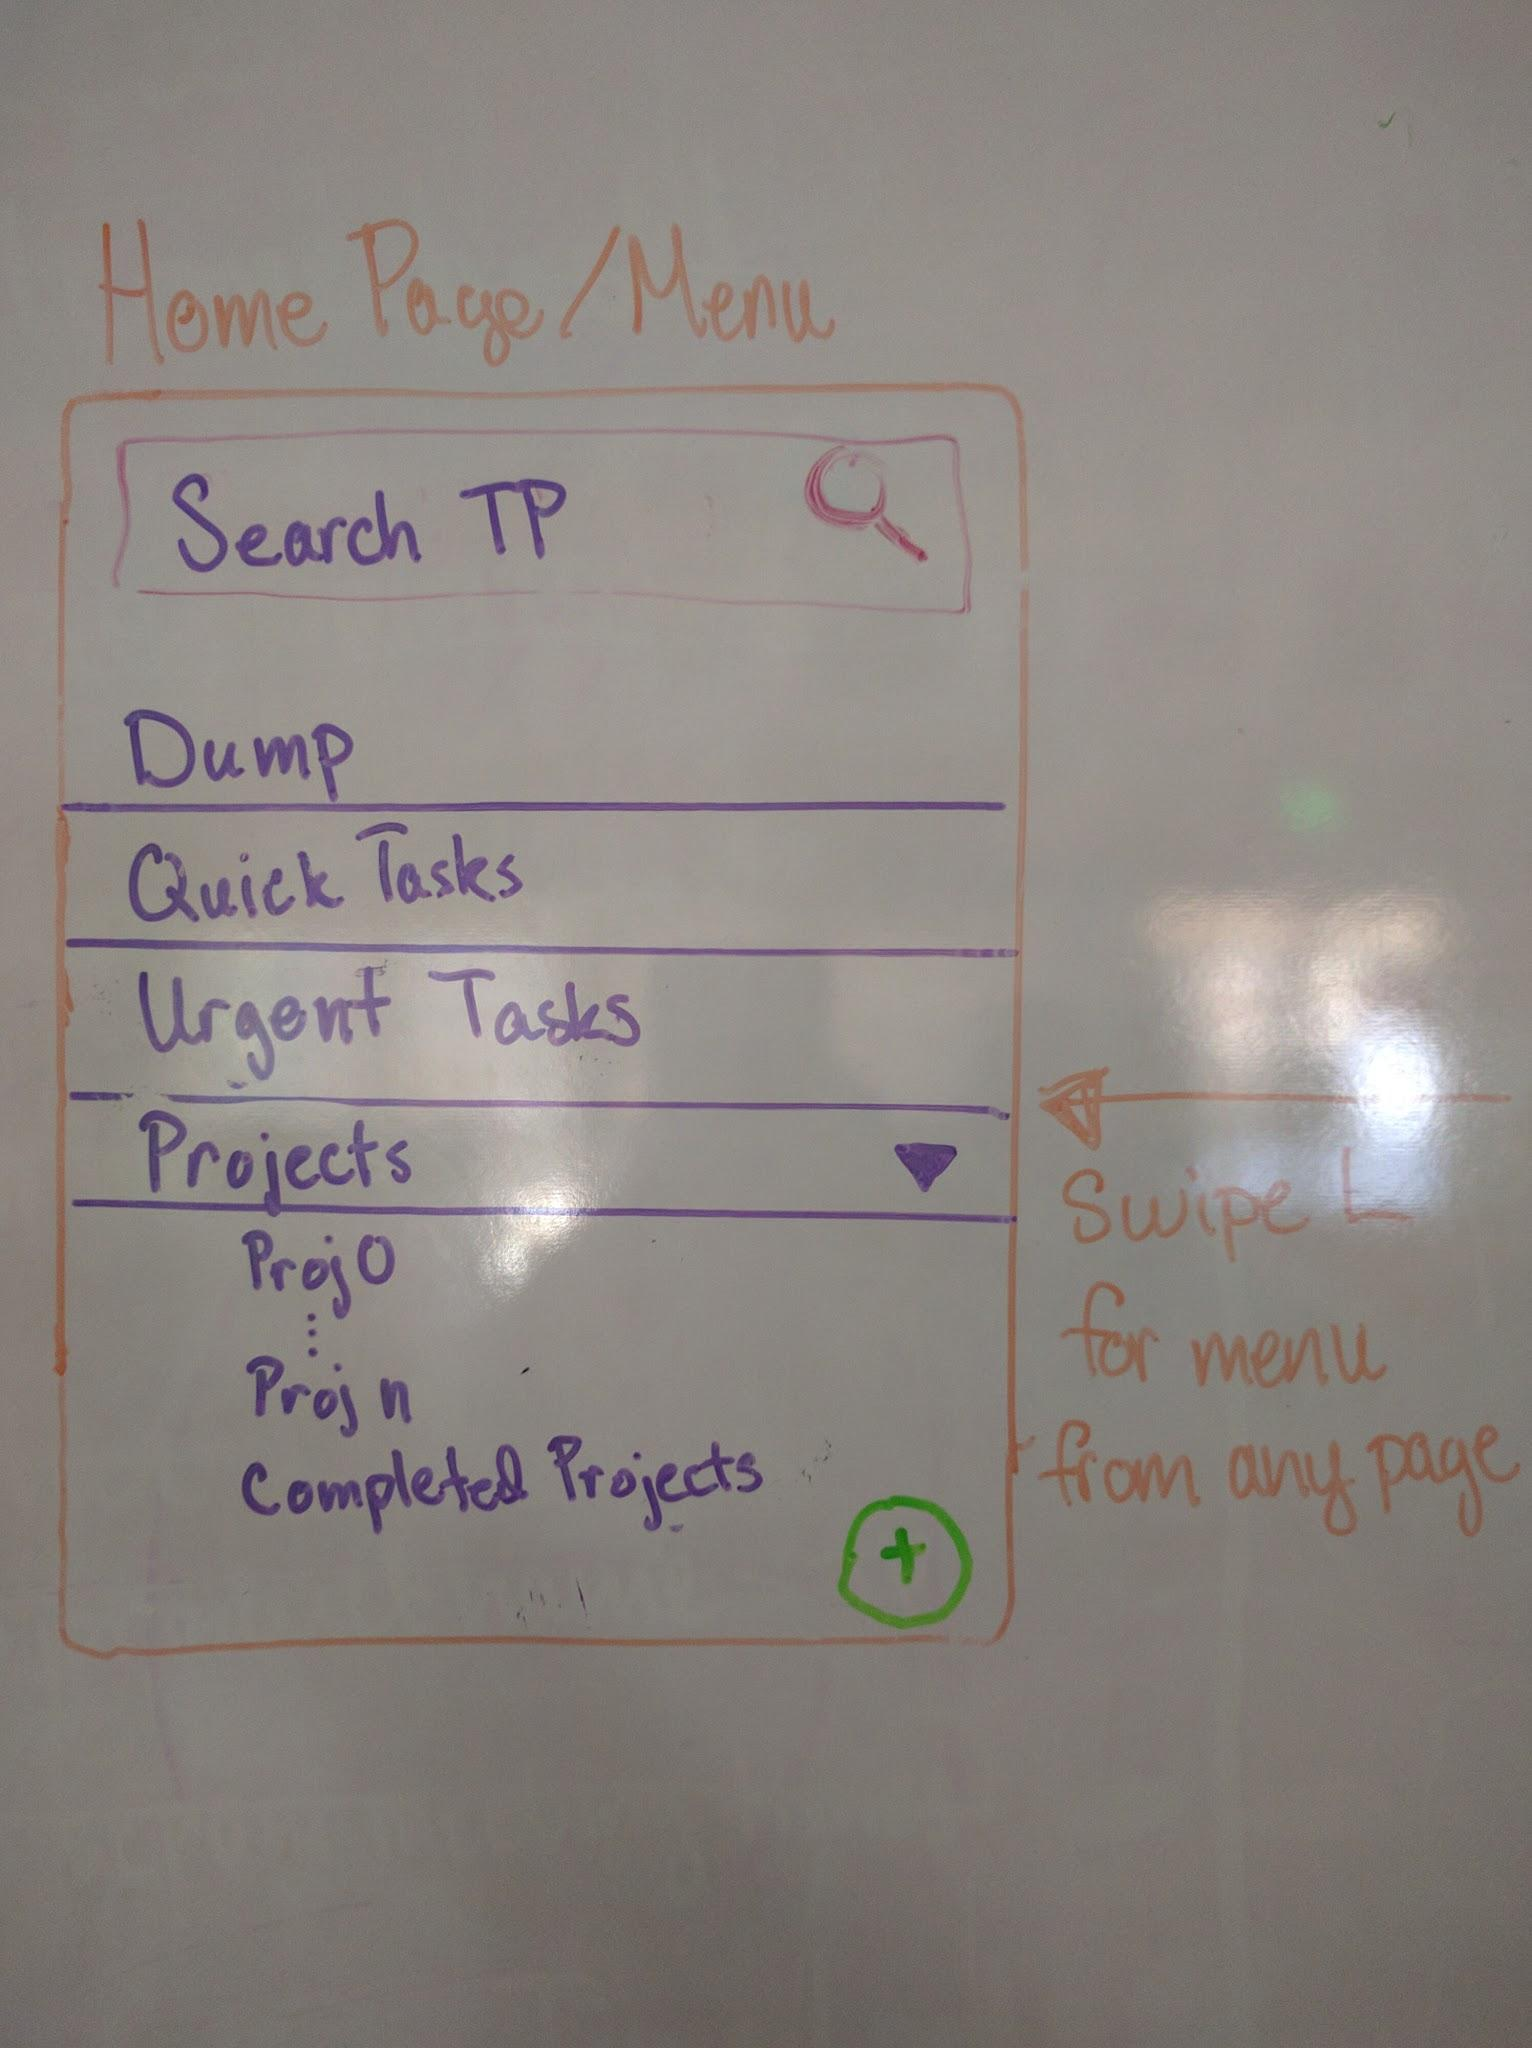 Home Page/Menu
Search TP
Dump
Quick Tasks
Urgent Tasks
Projects
Proj 0
⋮
Proj n
Completed Projects
+
Swipe L
for menu
from any page